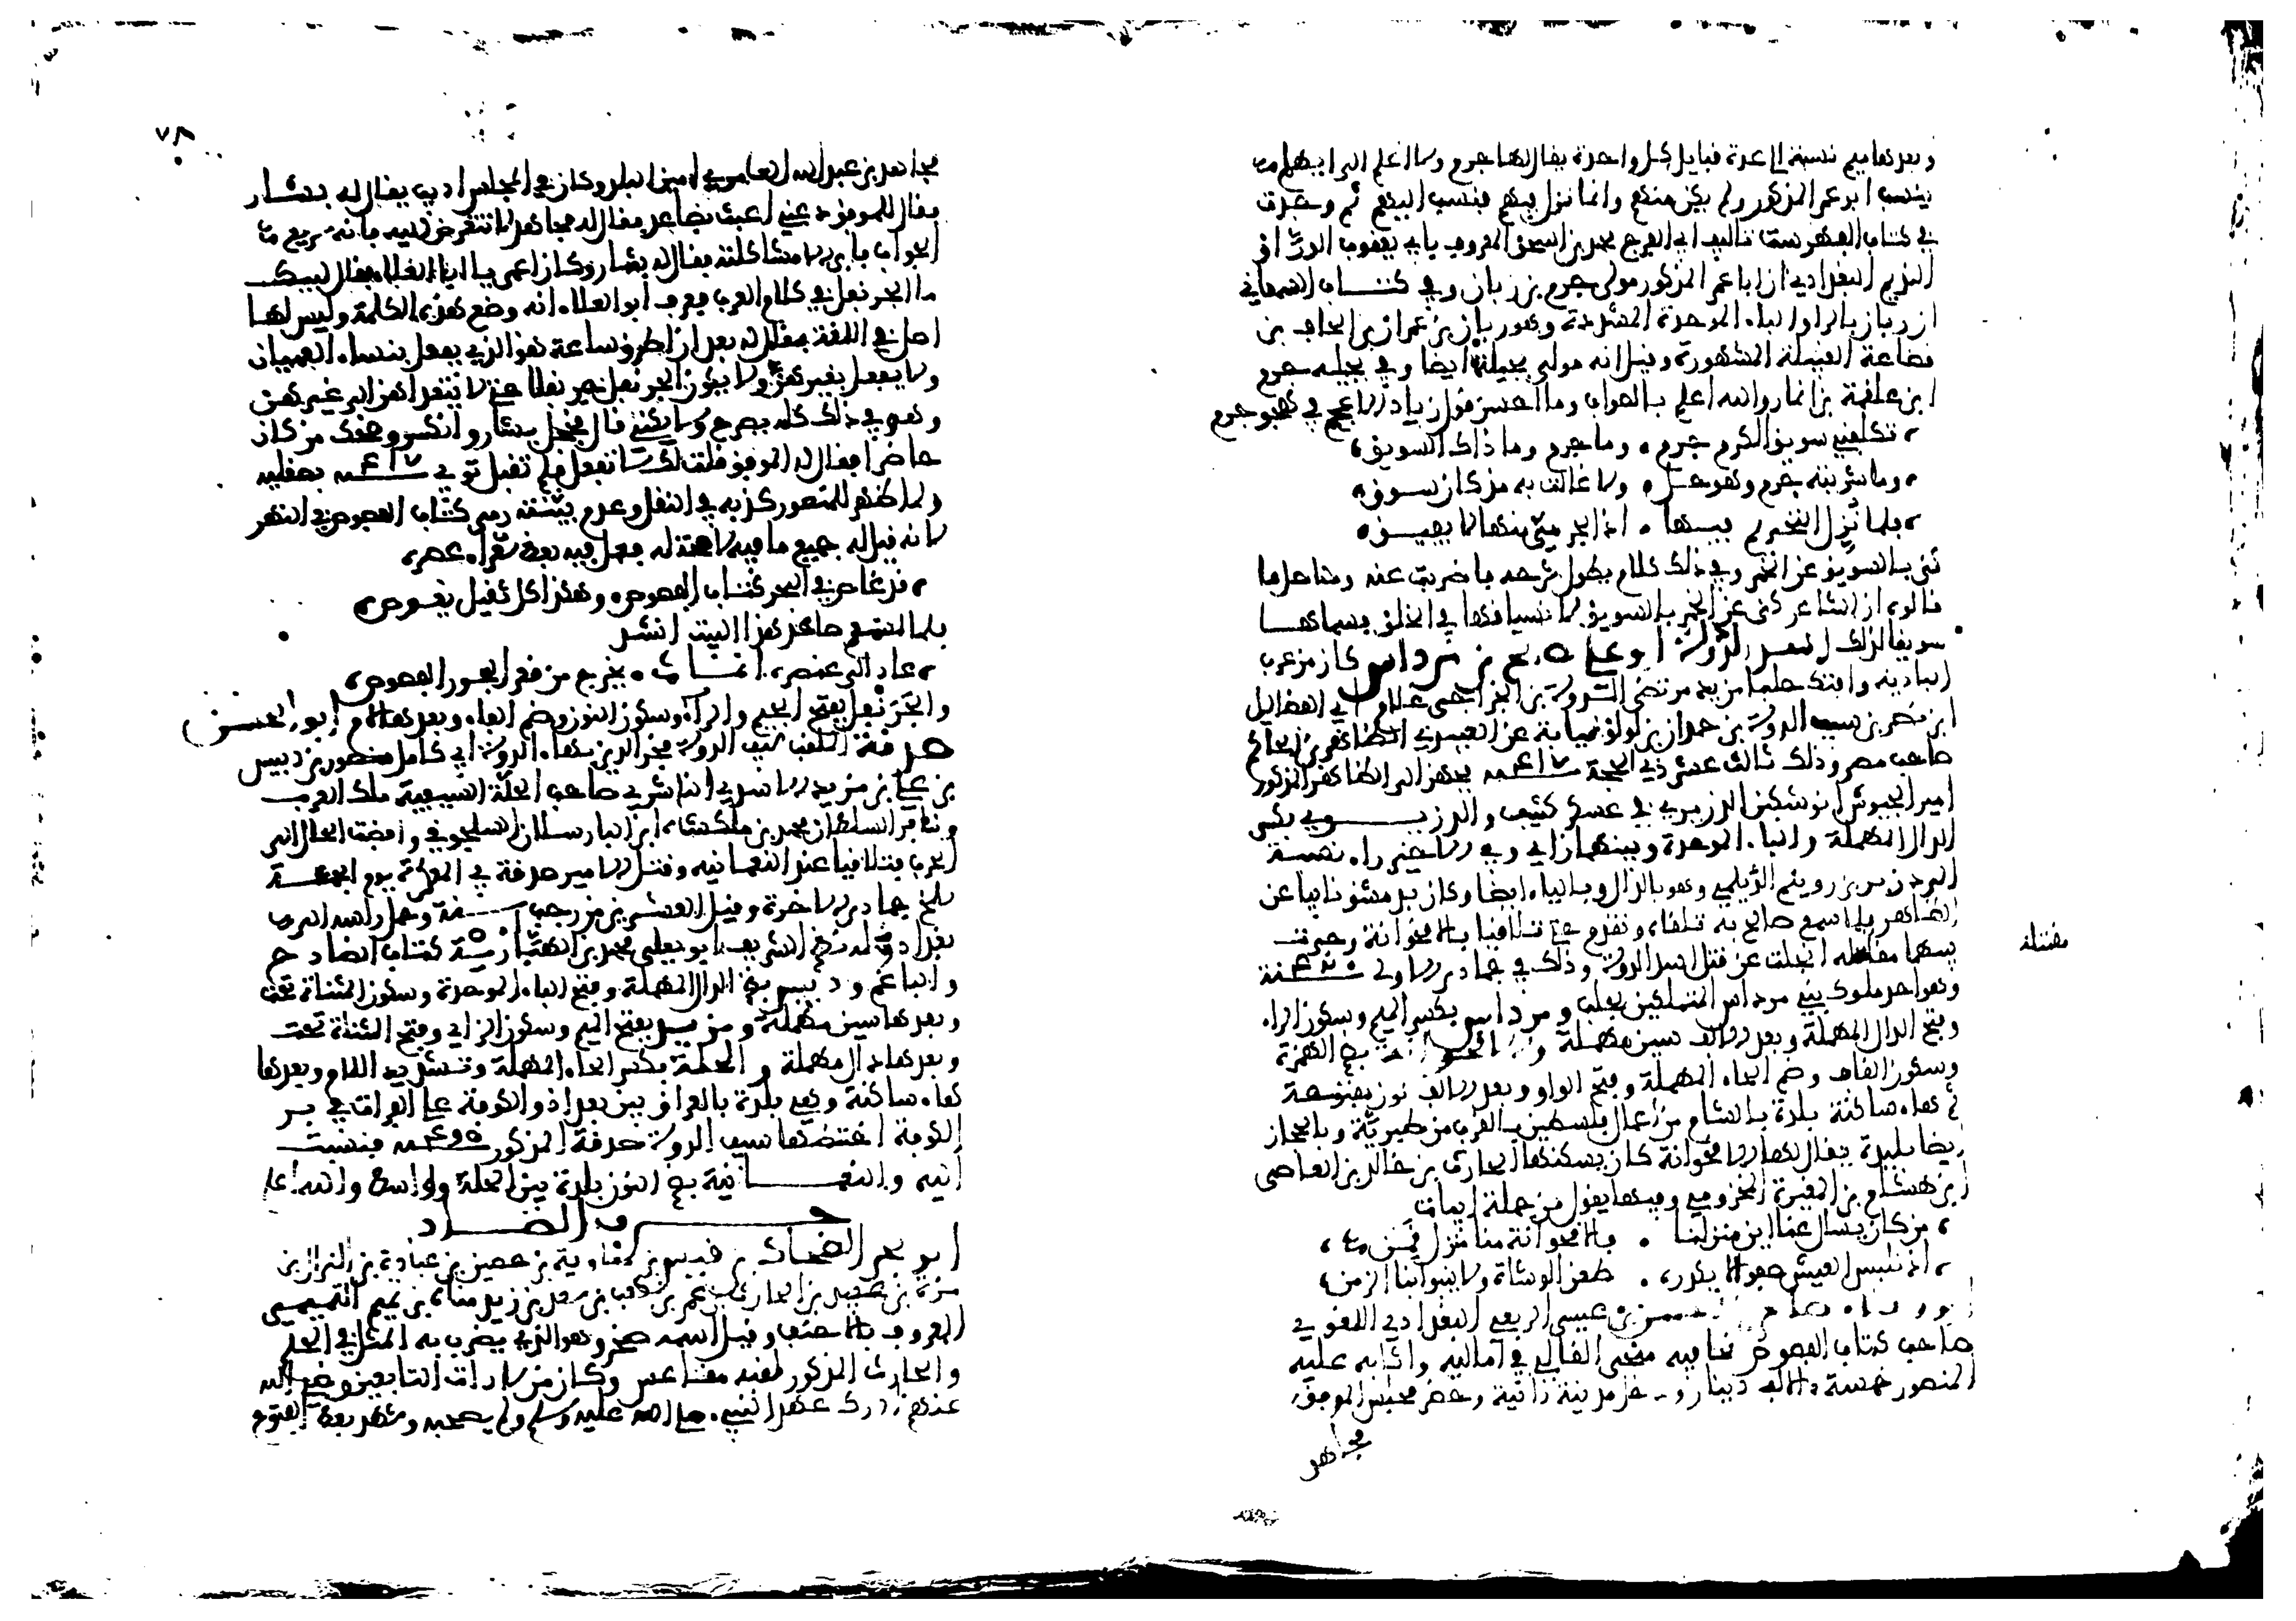 وبعدها ميم نسبة الى عدة قبايل كل واحدة يقال لها جرم ولا اعلم الى ايهم
ينسب ابو عمر المذكور ولم يكن منهم وانما نزل فيهم فنسب اليهم ثم وجدت
في كتاب الفهرست تاليف ابي الفرج محمد بن اسحق المعروف بابي يعقوب الوراق
النديم البغدادي ان ابا عمر المذكور مولى جرم بن زبان وفي كتاب السمعاني
ان ربان بالراء والباء الموحدة المشددة وهو ربان بن عمران بن الحاف بن
قضاعة القبيلة المشهورة وقيل انه مولى بجيلة ايضا وفي بجيلة جرم
ابن علقمة بن انمار والله اعلم بالصواب وما احسن قول زياد الاعجم في هجو جرم
تكلفني سويق الكرم جرم وما جرم وما ذاك السويق
وما شربته جرم وهو حل ولا غالت به مذ كان سوق
فلما نزل التحريم فيها اذا الجرمي منها لا يفيق
كنى بالسويق عن الخمر وفي ذلك كلام يطول شرحه فاضربت عنه وحاصل ما
قالوه ان الشاعر كنى عن الخمر بالسويق لانسياقها في الحلق فسماها
سويقا لذلك اسد الدولة ابو علي صالح بن مرداس كان من عرب
البادية وافتك حلبا من يد مرتضى الدولة بن الجراحي غلام ابي الفضايل
ابن نصر بن سعد الدولة بن حمدان بن لولو نيابة عن العبيدي الظاهر بن الحاكم
صاحب مصر وذلك ثالث عشر ذي الحجة ٤١٧ فجهز اليه الظاهر المذكور
امير الجيوش انوشتكين الدزبري في عسكر كثيف والدزبري بكسر
الدال المهملة والباء الموحدة وبينهما زاي وفي الاخير راء نسبة
الى دزبر بن رويتم الديلمي وهو بالدال وبالياء ايضا وكان بدمشق نايبا عن
الظاهر فلما سمع صالح به تلقاه وتقدم حتى تلاقيا بالاقحوانة وجرت
بينهما مقتلة انجلت عن قتل اسد الدولة وذلك في جمادى الاولى ٤٢٠ سنة
مقتلة
وهو احد ملوك بني مرداس المتملكين بحلب ومرداس بكسر الميم وسكون الراء
وفتح الدال المهملة وبعد الالف سين مهملة والاقحوانة بضم الهمزة
وسكون القاف وضم الحاء المهملة وفتح الواو وبعد الالف نون مفتوحة
ثم هاء ساكنة بلدة بالشام من اعمال فلسطين بالقرب من طبرية وبالحجاز
ايضا بليدة يقال لها الاقحوانة كان يسكنها الحارث بن خالد بن العاصي
ابن هشام بن المغيرة المخزومي وفيها يقول من جملة ابيات
من كان يسال عنا اين منزلنا فالاقحوانة منا منزل قمن
اذ نلبس العيش صفوا لا يكدره طعن الوشاة ولا ينبو بنا الزمن
بن عيسى الربعي البغدادي اللغوي
صاحب كتاب الفصوص نحا فيه منحى القالي في اماليه واثابه عليه
المنصور خمسة الاف دينار ودخل مدينة دانية وحضر مجلس الموفق
مجاهد
٧٨
مجاهد بن عبد الله العامري امير البلد وكان في المجلس اديب يقال له بشار
فقال للموفق دعني اعبث بصاعد فقال له مجاهد لا تتعرض اليه فانه سريع
الجواب فابى الا مشاكلته فقال له بشار وكان اعمى يا ابا العلاء فقال لبيك
ما الجرنفل في كلام العرب فعرف ابو العلاء انه وضع هذه الكلمة وليس لها
اصل في اللغة فقال له بعد ان اطرق ساعة هو الذي يفعل بنساء العميان
ولا يفعل بغيرهن ولا يكون الجرنفل جرنفلا حتى لا يتعداهن الى غيرهن
وهو في ذلك كله يصرح ولا يكني قال فخجل بشار وانكسر وضحك من كان
حاضرا فقال له الموفق قلت لك لا تفعل فلم تقبل توفي ٤١٧ بصقلية
ولما ظهر للمنصور كذبه في النقل وعدم تثبته رمى كتاب الفصوص في النهر
لانه قيل له جميع ما فيه لا صحة له فعمل فيه بعض شعراء عصره
قد غاص في البحر كتاب الفصوص وهكذا كل ثقيل يغوص
فلما سمع صاعد هذا البيت انشد
عاد الى عنصره انما يخرج من قعر البحور الفصوص
والجرنفل بفتح الجيم والراء وسكون النون وضم الفاء وبعدها لام ابو الحسن
صدقة الملقب سيف الدولة فخر الدين بن بهاء الدولة ابي كامل منصور بن دبيس
بن علي بن مزيد الاسدي الناشري صاحب الحلة السيفية ملك العرب
ونافر السلطان محمد بن ملكشاه بن البارسلان السلجوقي وافضت الحال الى
الحرب فتلاقيا عند النعمانية وقتل الامير صدقة في المعركة يوم الجمعة
سلخ جمادى الاخرة وقيل العشرين من رجب ٥٠١ سنة وحمل راسه الى
بغداد وله نظم الشريف ابو يعلى محمد بن الهبارية كتاب الصادح
والباغم ودبيس بضم الدال المهملة وفتح الباء الموحدة وسكون المثناة تحت
وبعدها سين مهملة ومزيد بفتح الميم وسكون الزاي وفتح المثناة تحت
وبعدها دال مهملة والحلة بكسر الحاء المهملة وتشديد اللام وبعدها
هاء ساكنة وهي بلدة بالعراق بين بغداذ والكوفة على الفرات في بر
الكوفة اختطها سيف الدولة صدقة المذكور ٤٩٥ فنسبت
اليه والنعمانية بضم النون بلدة بين الحلة وواسط والله اعلم
حرف الضاد
ابو بحر الضحاك بن قيس بن معاوية بن حصين بن عبادة بن النزال بن
مرة بن عبيد بن الحارث بن عمر بن كعب بن سعد بن زيد مناة بن تميم التميمي
المعروف بالاحنف وقيل اسمه صخر وهو الذي يضرب به المثل في الحلم
والحارث المذكور لقبه مقاعس وكان من سادات التابعين رضي الله
عنهم ادرك عهد النبي صلى الله عليه وسلم ولم يصحبه وشهد بعض الفتوح